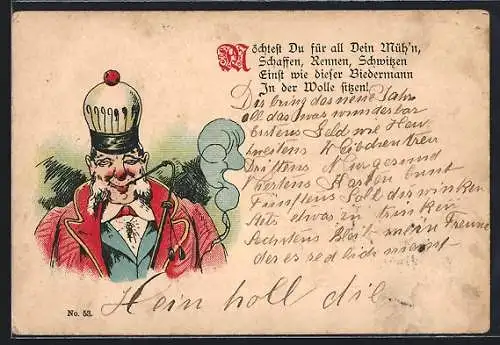 Möchtest Du für all Dein Müh'n,
Schaffen, Rennen, Schwitzen
Einst wie dieser Biedermann
In der Wolle sitzen!
Dir bring das neue Jahr
all das was wunderbar
Erstens Geld wie Heu
Zweitens Weibchen treu
Drittens
Viertens Kasten bunt
Fünftens Soll dir winken
stets etwas zu trinken
Sechstens Bleib mein Freund
der es redlich meint
Hein holl di
No. 53.